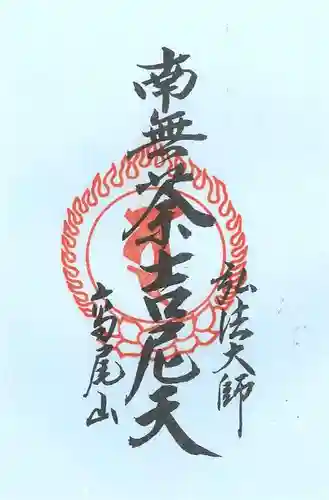 弘法大師
南無茶吉尼天
高尾山